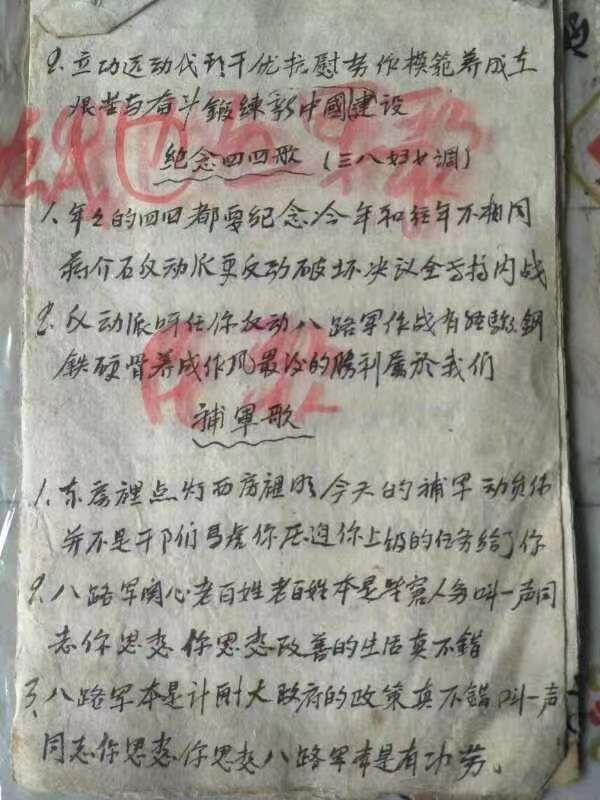 2. 立功运动代刘干优抗慰劳作模范养成立
艰苦奋斗鍛練新中國建设
紀念四四歌(三八妇女調)
1. 年々的四四都要纪念今年和往年不相同
蒋介石反动派要反动破坏决议全支持内战
2. 反动派呀任你反动八路军作战有经驗鋼
鉄硬骨养成作风最后的勝利属於我们
補軍歌
1. 东房裡点灯西房裡明今天的補军动员
并不是干部们马虎你压迫你上级的任务给了你
2. 八路军関心老百姓老百姓本是穷人多叫一声同
志你思想你思想改善的生活真不错
3. 八路军本是计刬大政府的政策真不错叫一声
同志你思想你思想八路军本是有功劳。